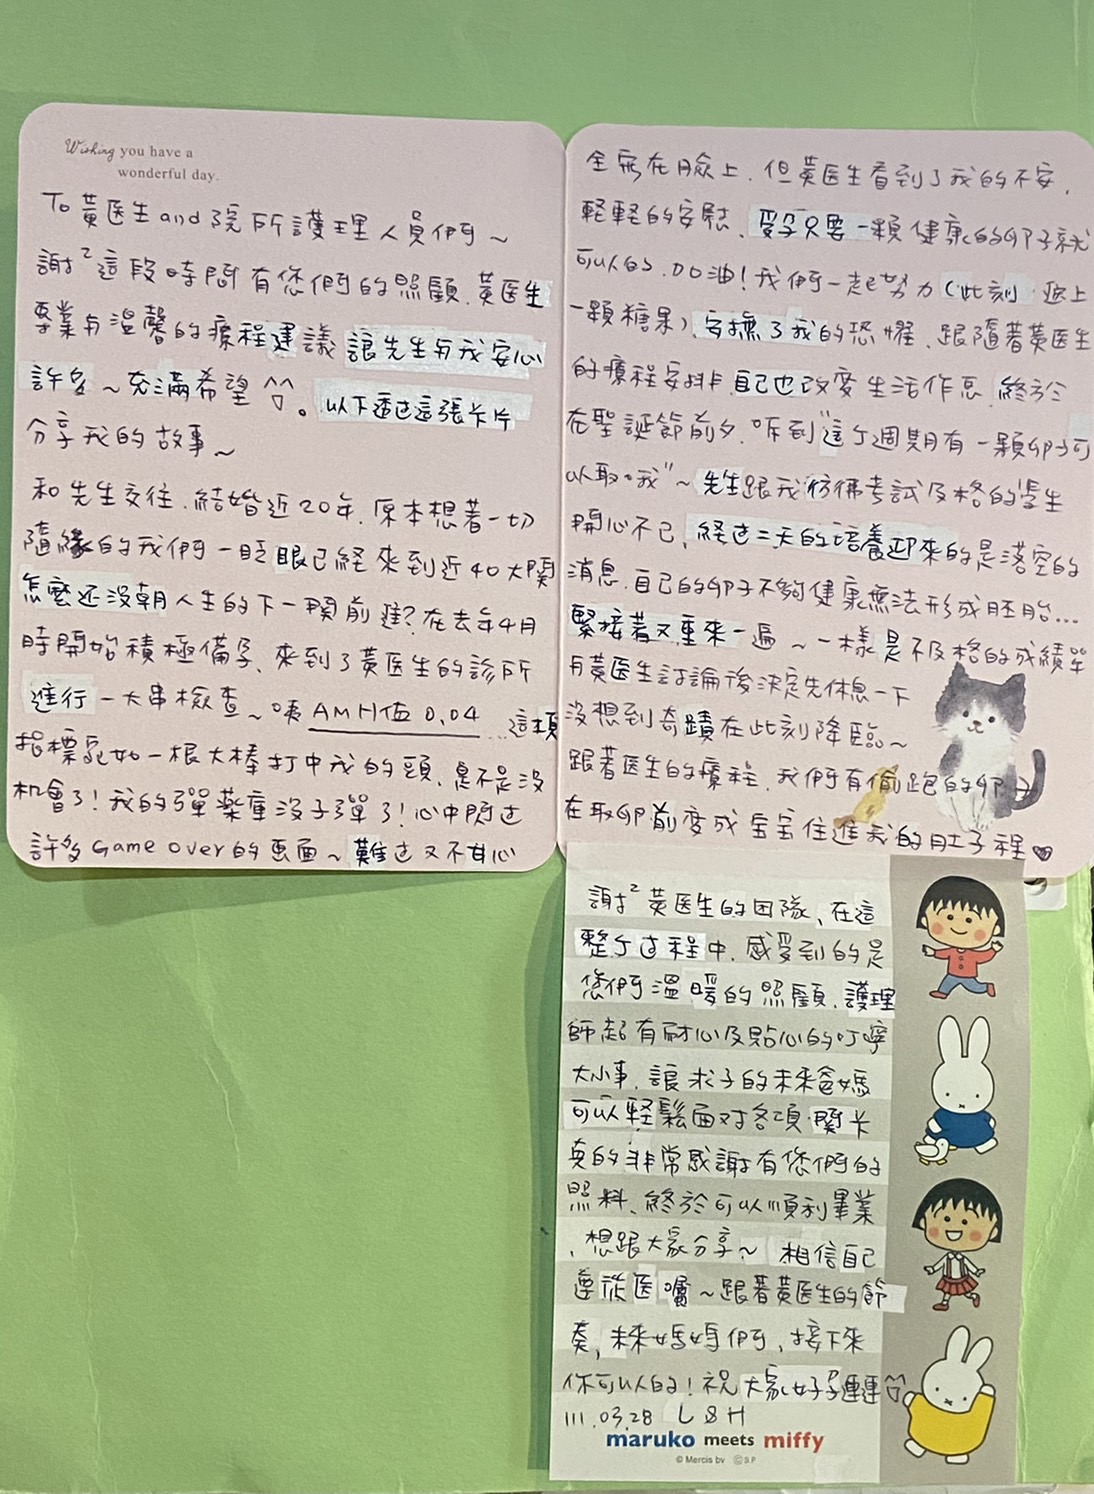 Wishing you have a
wonderful day.
To 黃医生 and 院所護理人員們~
謝²這段時間有您們的照顧.黃医生
專業与溫馨的療程建議 讓先生与我安心
許多~充滿希望 ^^。以下透过這張卡片
分享我的故事~
和先生交往.結婚近20年.原本想著一切
隨緣的我們一眨眼已経來到近40大關
怎麼还沒朝人生的下一關前進?在去年4月
時開始積極備孕、來到了黃医生的診所
進行一大串檢查~咦AMH值0.04...這項
指標宛如一根大棒打中我的頭、是不是沒
机會了!我的彈藥庫沒子彈了!心中閃过
許多Game over的畫面~難过又不甘心
全寫在臉上.但黃医生看到了我的不安.
輕輕的安慰、受孕只要一顆健康的卵子就
可以的.加油!我們一起努力(此刻遞上
一顆糖果)安撫了我的恐懼.跟隨著黃医生
的療程安排 自己也改变生活作息 終於
在聖誕節前夕.听到"這个週期有一顆卵子可
以取哦"~先生跟我彷彿考試及格的學生
開心不已、経过三天的培養迎來的是落空的
消息.自己的卵子不夠健康無法形成胚胎...
緊接著又重來一遍~一樣是不及格的成績單
与黃医生討論後決定先休息一下
沒想到奇蹟在此刻降臨~
跟著医生的療程.我們有偷跑的卵子
在取卵前变成宝宝住進我的肚子裡♥
謝²黃医生的团隊、在這
整个过程中.感受到的是
您們溫暖的照顧.護理
師超有耐心及貼心的叮嚀
大小事.讓求子的未來爸媽
可以輕鬆面对各項關卡
真的非常感謝有您們的
照料、終於可以順利畢業
、想跟大家分享~ 相信自己
遵從医囑~跟著黃医生的節
奏,未來媽媽們,接下來
你可以的!祝大家好孕連連^^
111.03.28 LSH
maruko meets miffy
© Mercis bv ©S.P